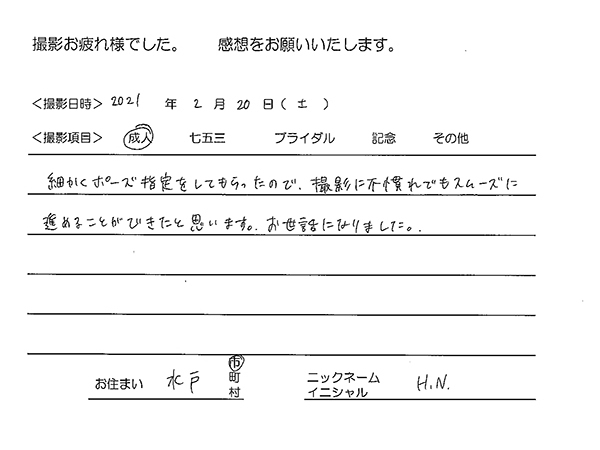 撮影お疲れ様でした。　感想をお願いいたします。
＜撮影日時＞ 2021 年 2 月 20 日（ 土 ）
＜撮影項目＞ 成人 七五三 ブライダル 記念 その他
細かくポーズ指定をしてもらったので、撮影に不慣れでもスムーズに
進めることができたと思います。お世話になりました。
お住まい 水戸 市 町 村 ニックネーム イニシャル H.N.